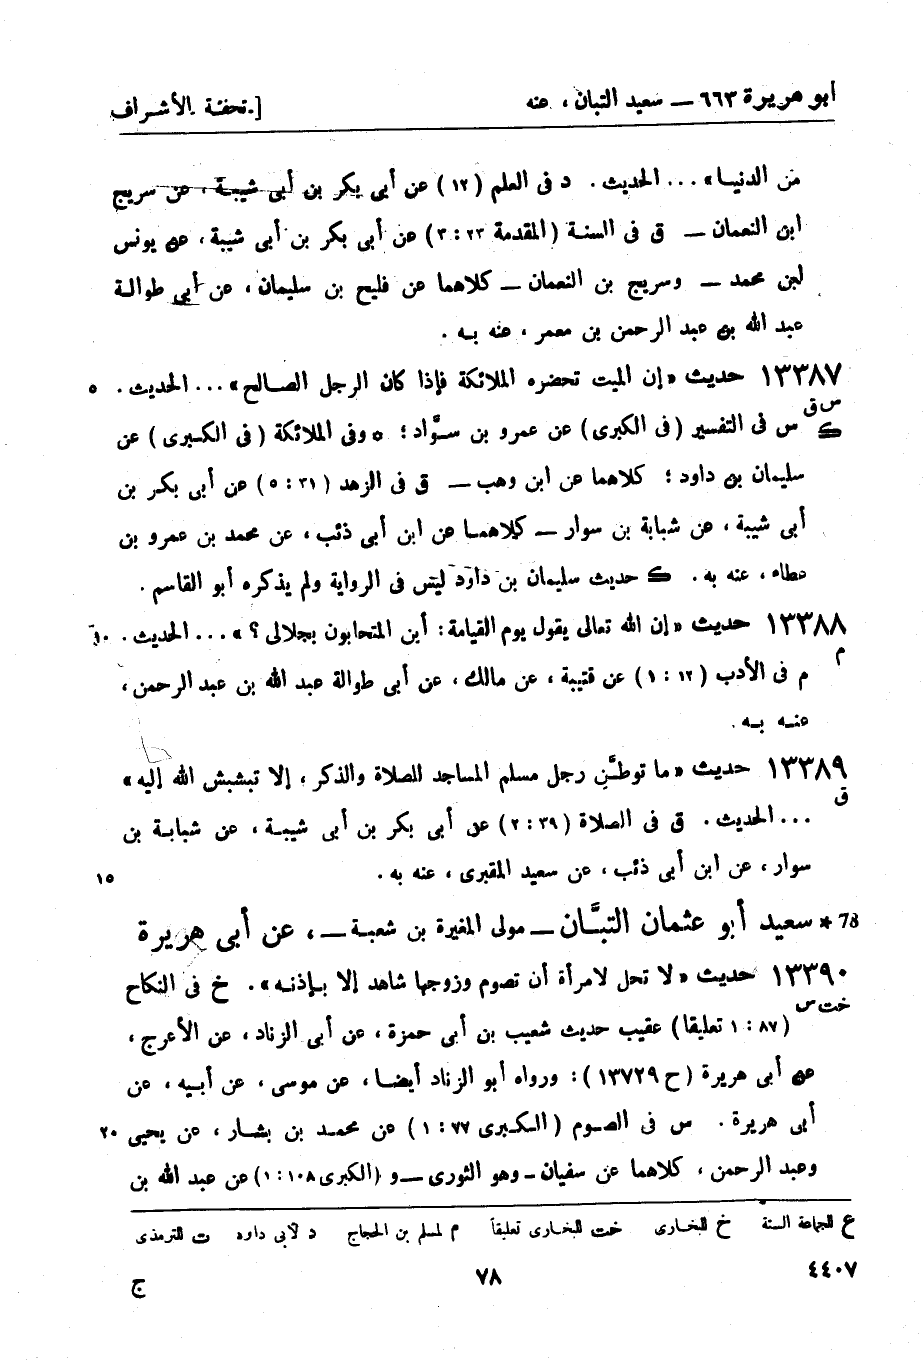 أبو هريرة ٦٦٣ — سعيد التبان ، عنه
[ تحفة الأشراف
من الدنيا» ... الحديث . د فى العلم (١٢) عن أبى بكر بن أبى شيبة ، عن سريج
ابن النعمان — ق فى السنة (المقدمة ٢٣ : ٣) عن أبى بكر بن أبى شيبة ، عن يونس
ابن محمد — وسريج بن النعمان — كلاهما عن فليح بن سليمان ، عن أبى طوالة
عبد الله بن عبد الرحمن بن معمر ، عنه به .
١٣٣٨٧ حديث «إن الميت تحضره الملائكة فإذا كان الرجل الصالح» ... الحديث . ٥
س ق
س فى التفسير (فى الكبرى) عن عمرو بن سوَّاد ؛ ٥ وفى الملائكة (فى الكبرى) عن
ك
سليمان بن داود ؛ كلاهما عن ابن وهب — ق فى الزهد (٣١ : ٥) عن أبى بكر بن
أبى شيبة ، عن شبابة بن سوار — كلاهما عن ابن أبى ذئب ، عن محمد بن عمرو بن
عطاء ، عنه به . ك حديث سليمان بن داود ليس فى الرواية ولم يذكره أبو القاسم .
١٣٣٨٨ حديث «إن الله تعالى يقول يوم القيامة : أين المتحابون بجلالى ؟» ... الحديث . ١٠
م
م فى الأدب (١٢ : ١) عن قتيبة ، عن مالك ، عن أبى طوالة عبد الله بن عبد الرحمن ،
عنه به .
١٣٣٨٩ حديث «ما توطَّن رجل مسلم المساجد للصلاة والذكر ، إلا تبشبش الله إليه»
ق
... الحديث . ق فى الصلاة (٣٩ : ٢) عن أبى بكر بن أبى شيبة ، عن شبابة بن
سوار ، عن ابن أبى ذئب ، عن سعيد المقبرى ، عنه به . ١٥
78 * سعيد أبو عثمان التبَّان — مولى المغيرة بن شعبة — ، عن أبى هريرة
١٣٣٩٠ حديث «لا تحل لامرأة أن تصوم وزوجها شاهد إلا بإذنه» . خ فى النكاح
خت س
(٨٧ : ١ تعليقا) عقيب حديث شعيب بن أبى حمزة ، عن أبى الزناد ، عن الأعرج ،
عن أبى هريرة (ح ١٣٧٢٩) : ورواه أبو الزناد أيضا ، عن موسى ، عن أبيه ، عن
أبى هريرة . س فى الصوم (الكبرى ٧٧ : ١) عن محمد بن بشار ، عن يحيى ٢٠
وعبد الرحمن ، كلاهما عن سفيان - وهو الثورى — و (الكبرى ١٠٨ : ١) عن عبد الله بن
ع للجماعة الستة خ للبخارى خت للبخارى تعليقاً م لمسلم بن الحجاج د لأبى داود ت للترمذى
٤٤٠٧ ٧٨ ج